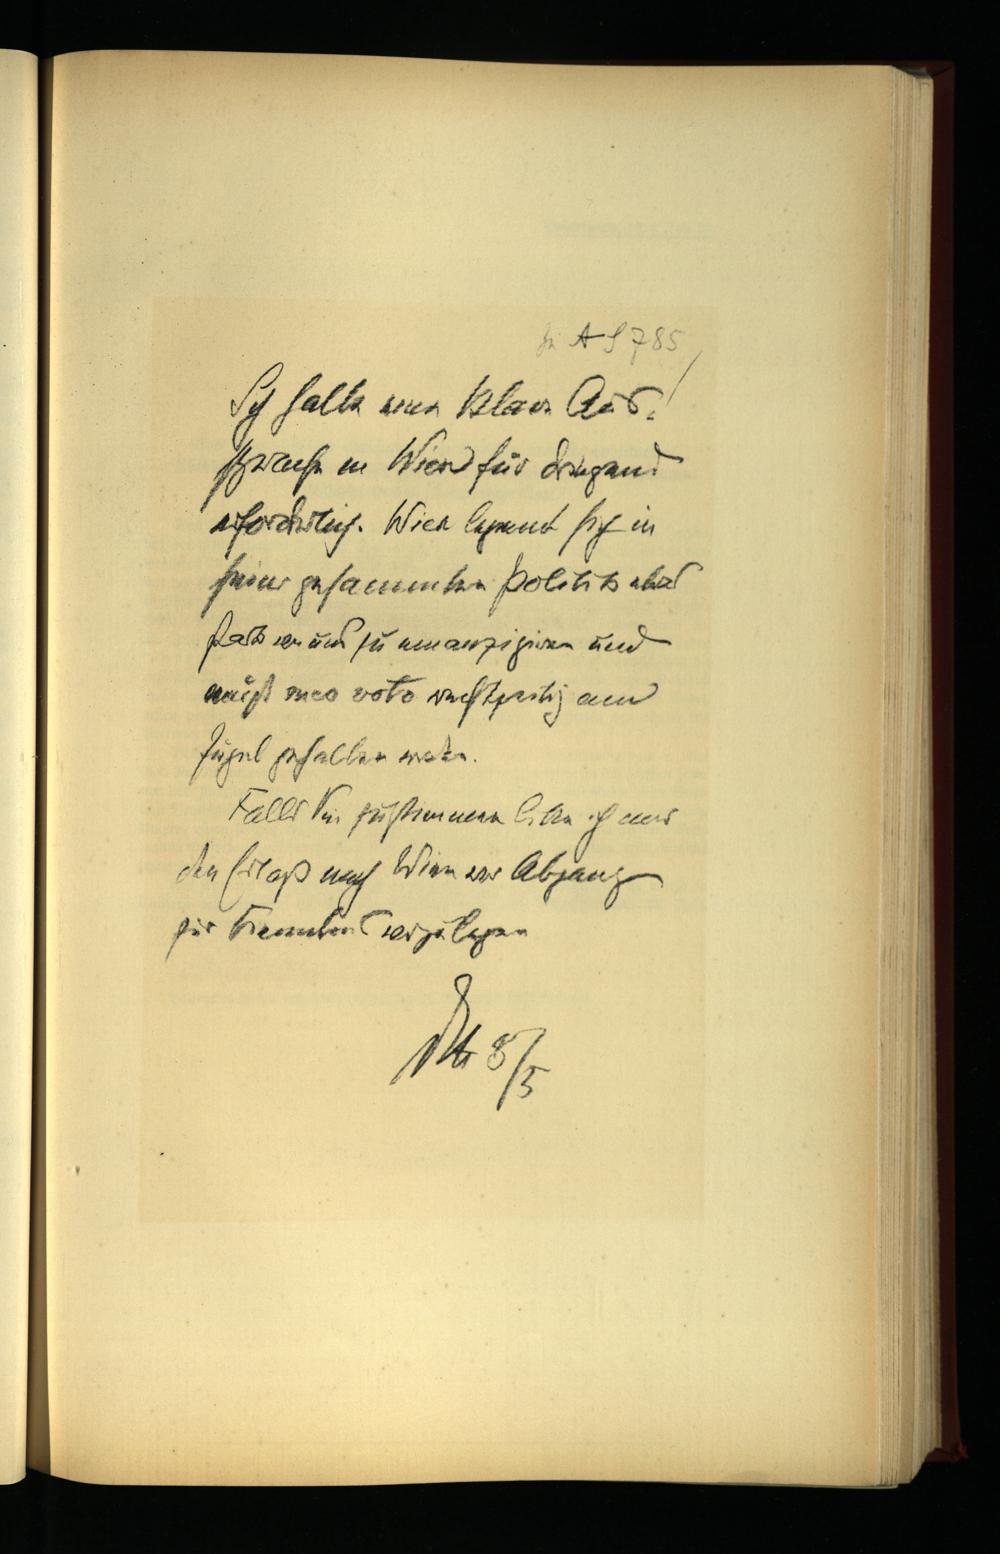 zu A S 785
Ich halte eine klare Aus-
sprache in Wien für dringend
erforderlich. Wien beginnt sich in
seiner gesammten Politik etwas
stark von uns zu emanzipiren und
muß meo voto rechtzeitig am
Zügel gehalten werden.
Falls Sie zustimmen bitte ich mir
den Erlaß nach Wien vor Abgang
zur vorzulegen
8/5